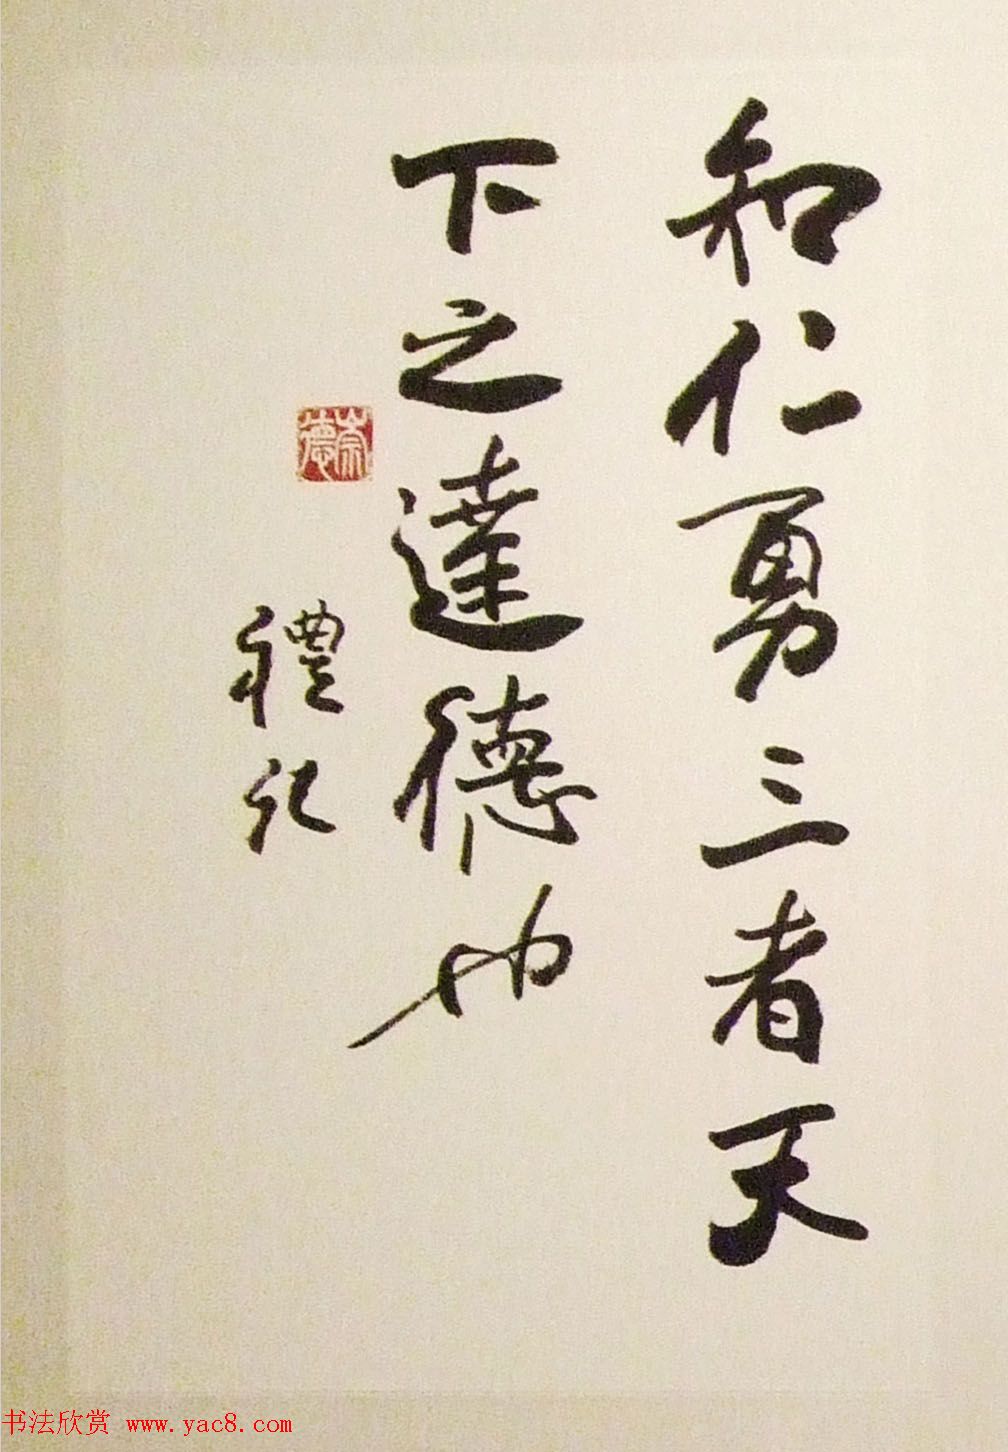 知仁勇三者天
下之達德也
禮記
崇德
书法欣赏 www.yac8.com